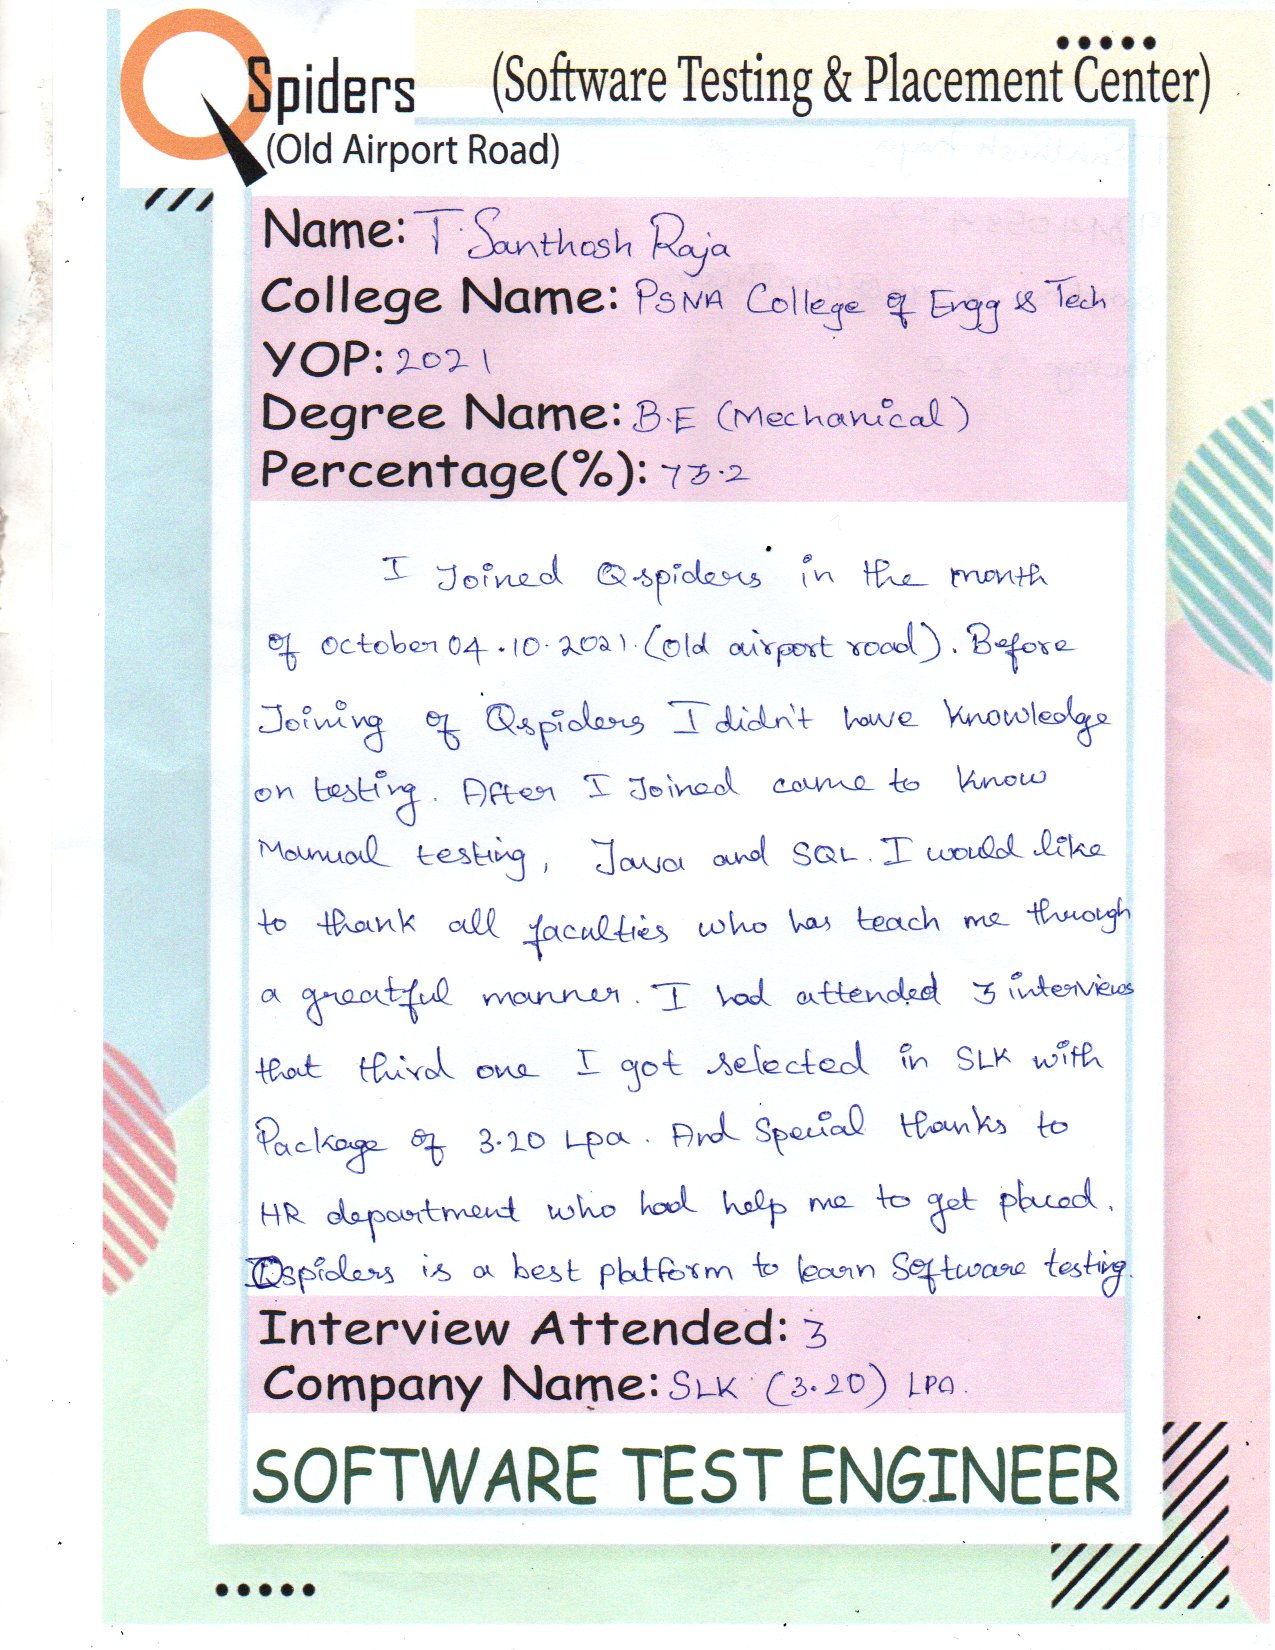 QSpiders (Software Testing & Placement Center)
(Old Airport Road)
Name: T. Santhosh Raja
College Name: PSNA College of Engg & Tech
YOP: 2021
Degree Name: B.E (Mechanical)
Percentage(%): 73.2
I Joined Qspiders in the month
of october 04.10.2021. (old airport road). Before
Joining of Qspiders I didn't have knowledge
on testing. After I Joined came to know
Manual testing, Java and SQL. I would like
to thank all faculties who has teach me through
a greatful manner. I had attended 3 interviews
that third one I got selected in SLK with
Package of 3.20 Lpa. And Special thanks to
HR department who had help me to get placed.
Qspiders is a best platform to learn Software testing.
Interview Attended: 3
Company Name: SLK (3.20) LPA.
SOFTWARE TEST ENGINEER